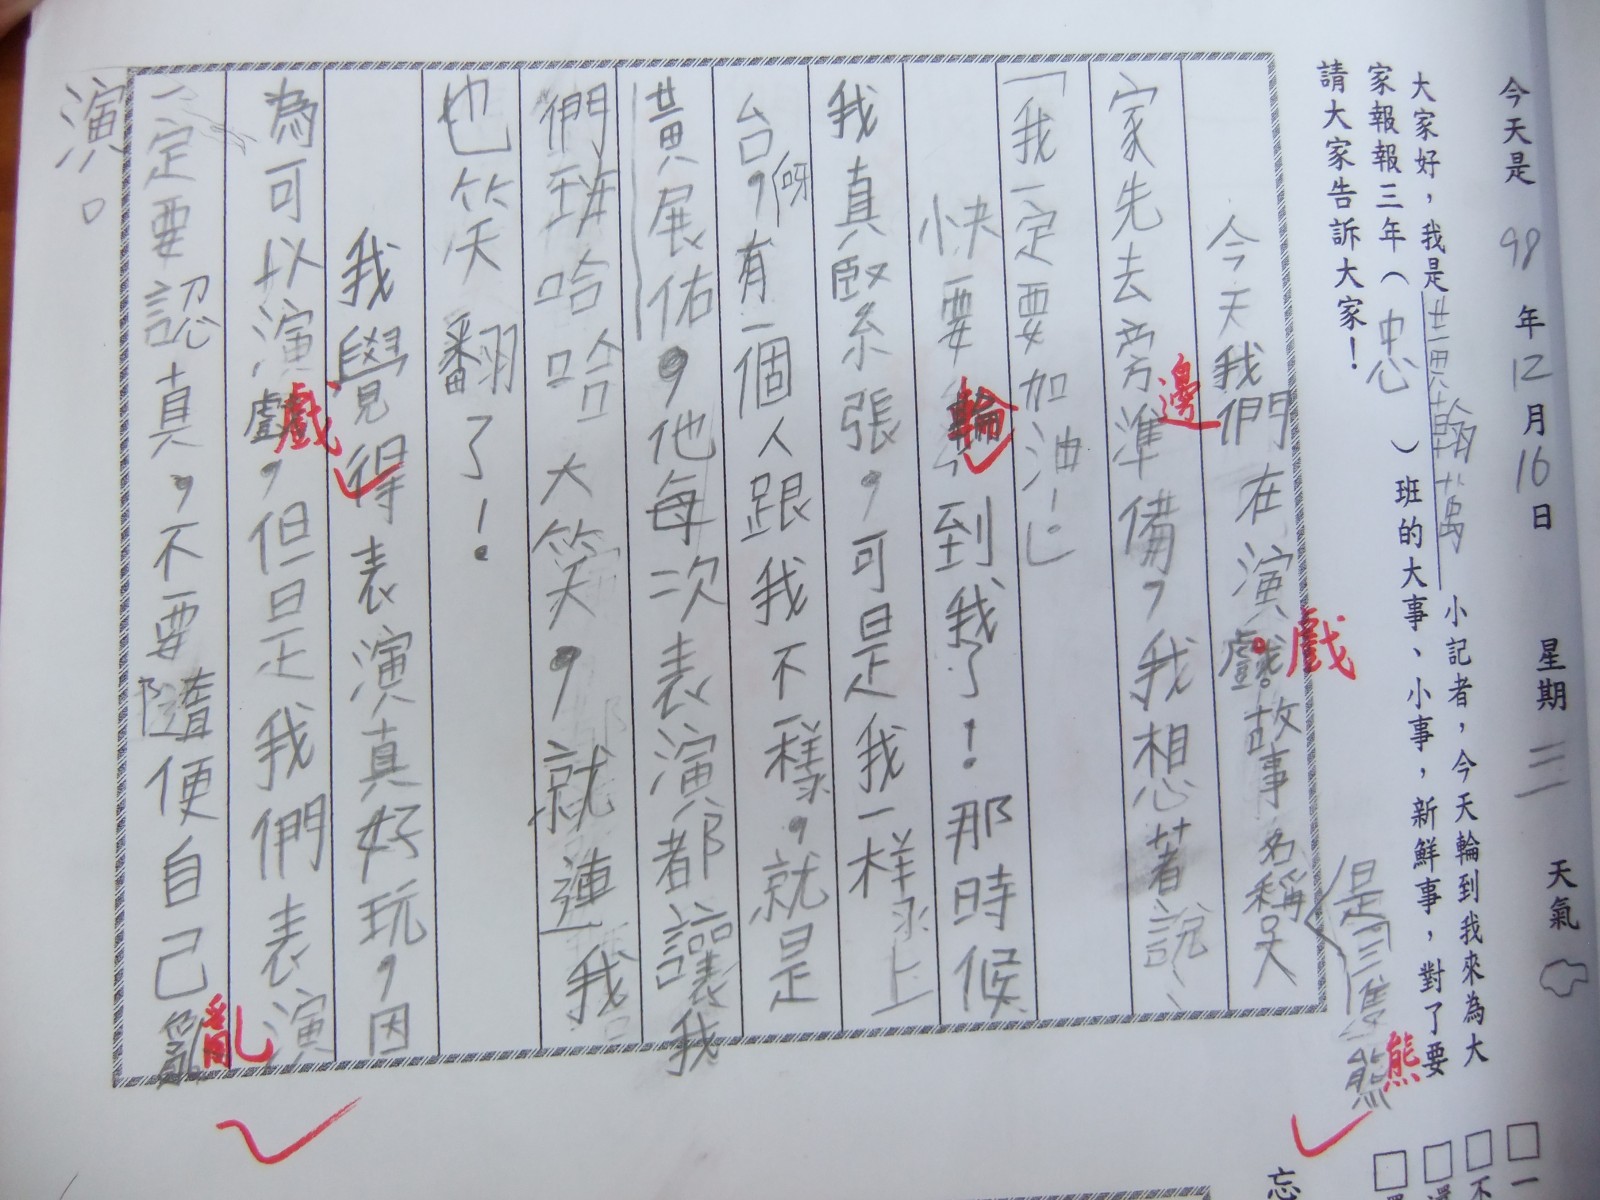 今天是 98 年 12 月 16 日 星期 三 天氣
大家好，我是黃翰萬 小記者，今天輪到我來為大
家報報三年（忠）班的大事、小事，新鮮事，對了要
請大家告訴大家！
是三隻熊
熊
今天我們在演戲故事名稱
戲
家先去旁準備，我想著說、
邊
「我一定要加油！」
快要輪到我了！那時候
我真緊張，可是我一样上
台，有一個人跟我不一樣，就是
黃展佑，他每次表演都讓我
們班哈哈大笑，就連我
也笑翻了！
我覺得表演真好玩，因
為可以演戲，但是我們表演
戲
一定要認真，不要隨便自己亂
亂
演。
忘